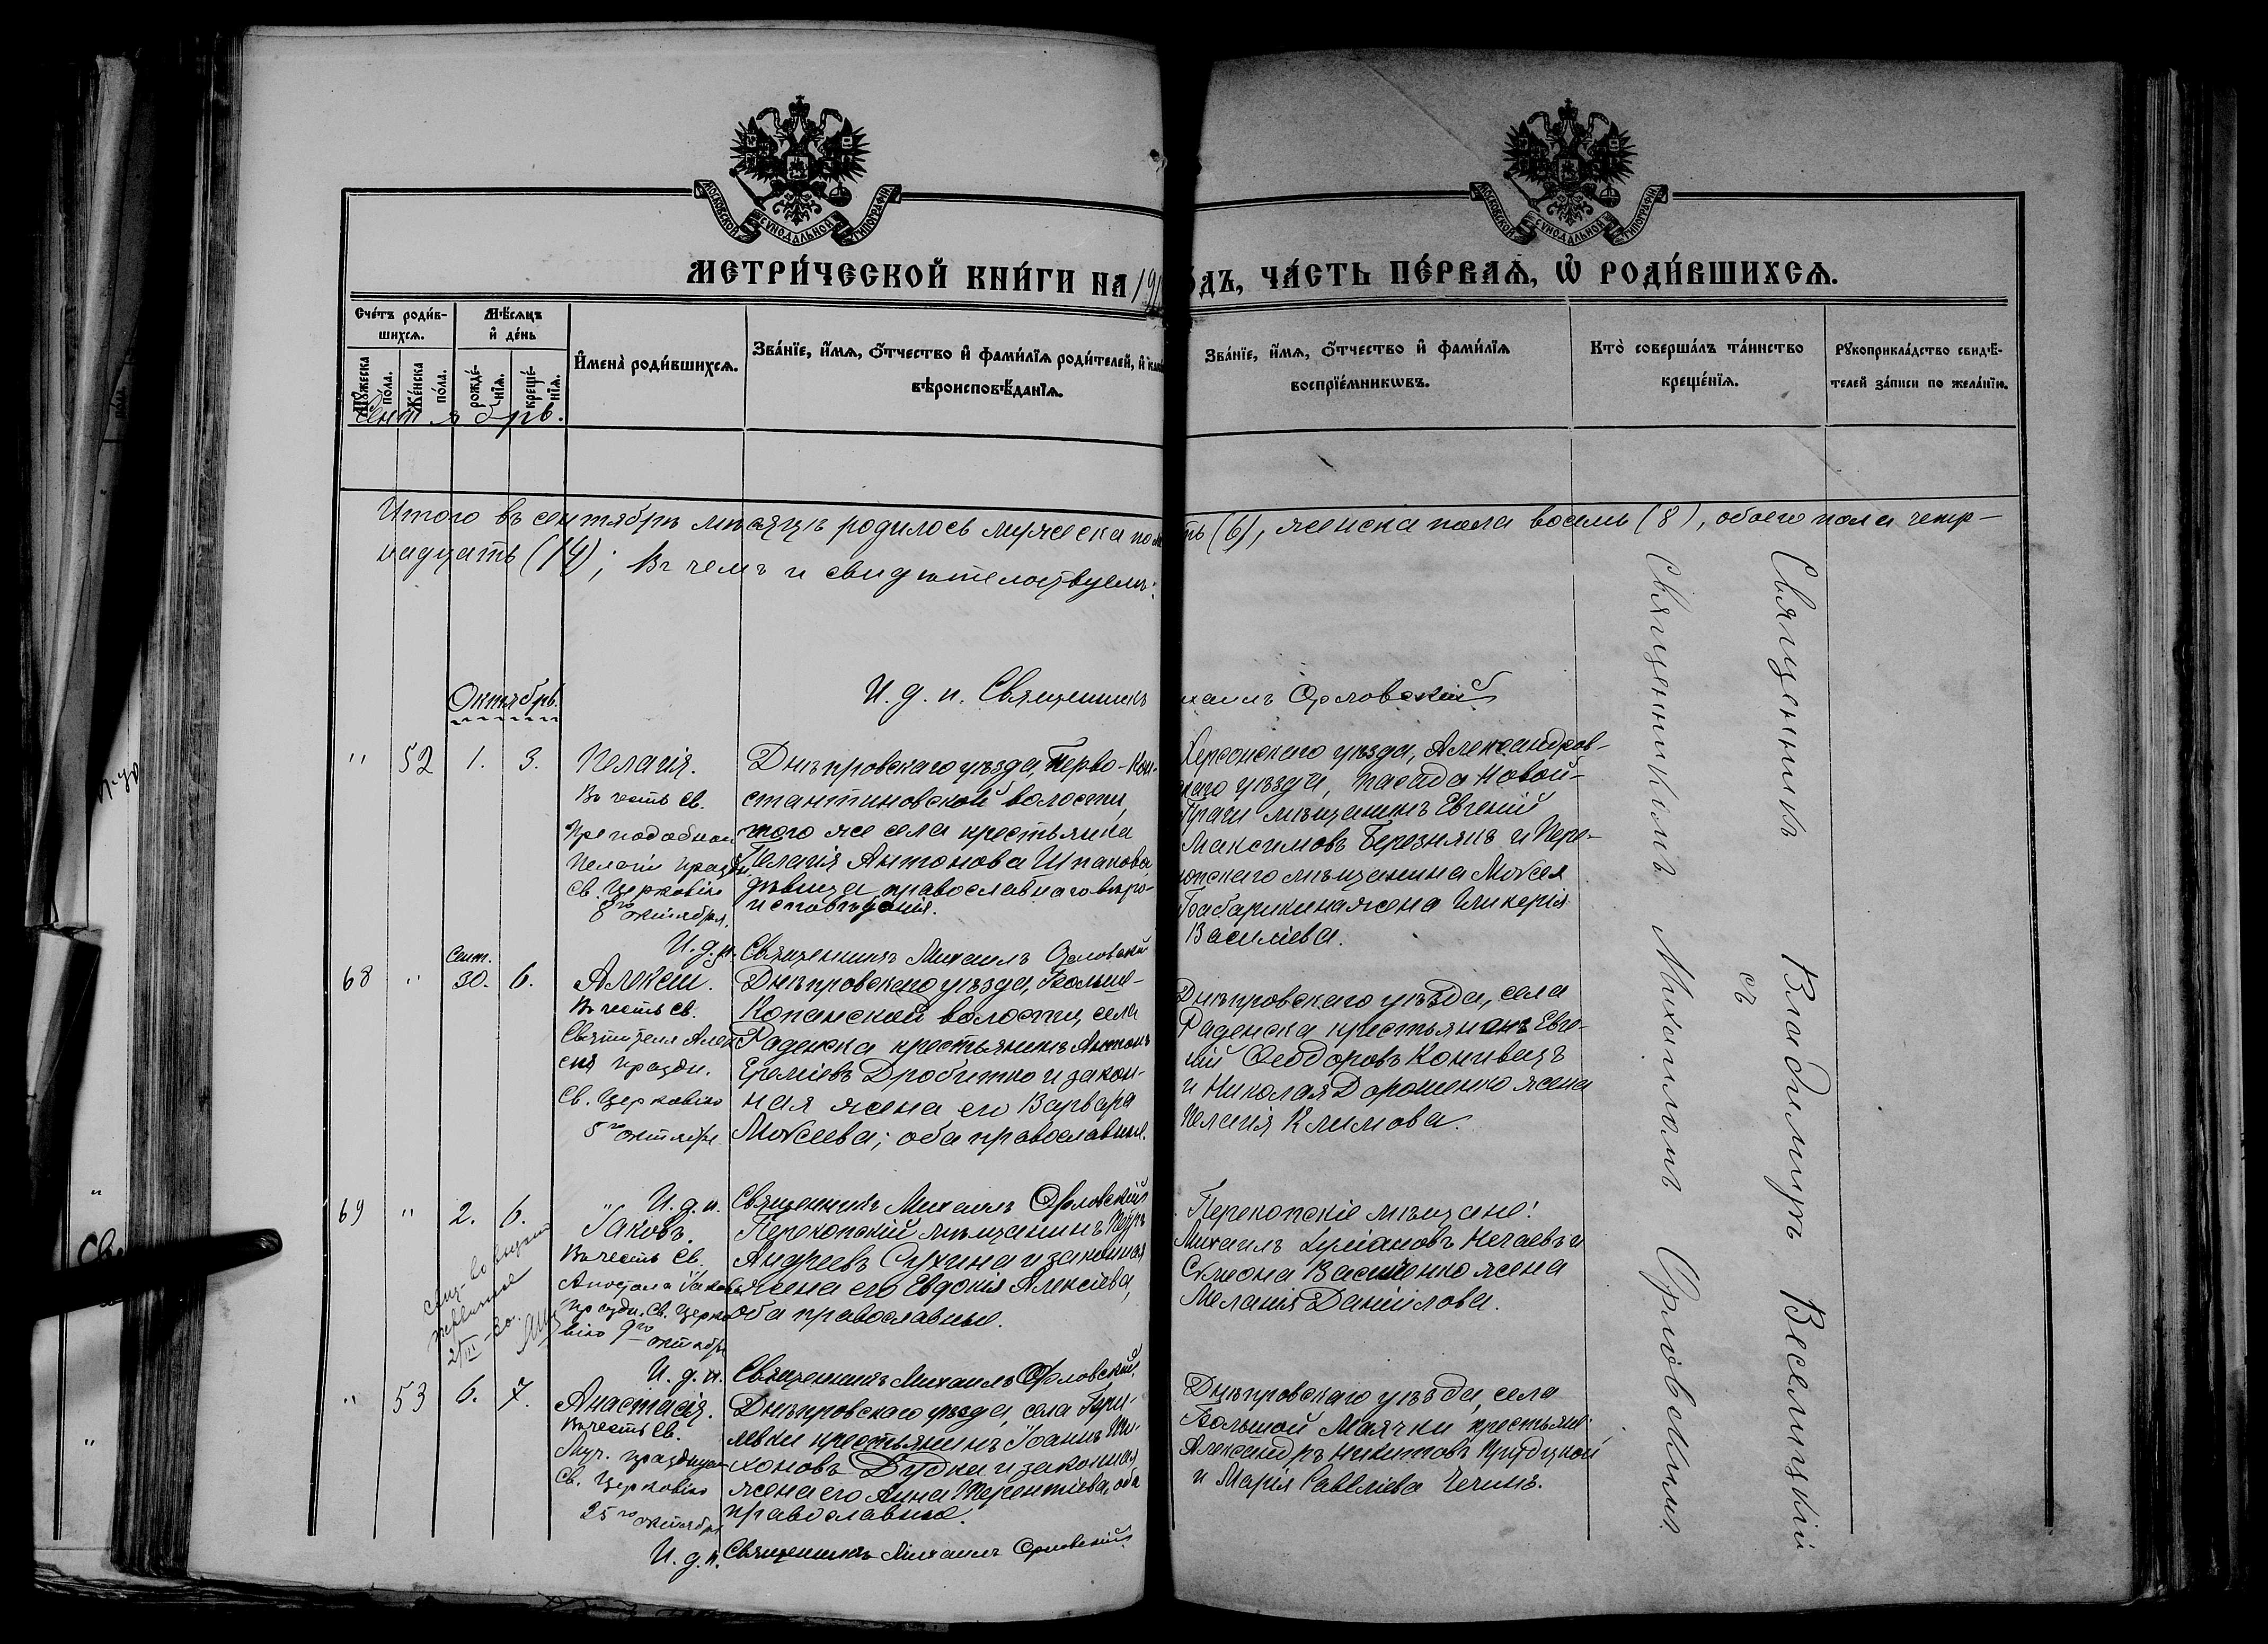 МОСКОВСКОЙ СУНОДАЛЬНОЙ ТИПОГРАФІИ
МОСКОВСКОЙ СУНОДАЛЬНОЙ ТИПОГРАФІИ
МЕТРИ́ЧЕСКОЙ КНИ́ГИ НА 191
ОДЪ, ЧА́СТЬ ПЕ́РВАѦ, Ѡ РОДИ́ВШИХСѦ.
Сче́тъ роди́в-
шихсѧ.
Мѣ́сѧцъ
и҆ де́нь
Мꙋ́жеска по́ла.
Же́нска по́ла.
рожде́-нїѧ.
креще́-нїѧ.
И҆мена̀ роди́вшихсѧ.
Зва́нїе, и҆́мѧ, ѻ҆́тчество и҆ фами́лїѧ роди́телей, и҆
вѣроисповѣ́данїѧ.
Зва́нїе, и҆́мѧ, ѻ҆́тчество и҆ фами́лїѧ
воспрїе́мникѡвъ.
Кто̀ соверша́лъ та́инство
креще́нїѧ.
Рꙋкоприкла́дство свидѣ́-
телей за́писи по жела́нїю.
Сентябрь.
Итого въ сентябрѣ мѣсяцѣ родилось мужеска по
ть (6), женска пола восемь (8), обоего пола четыр-
надцать (14); Въ чемъ и свидѣтельствуемъ:
И. д. п. Священникъ
хаилъ Орловскій
Октябрь.
" 52 1. 3. Пелагія.
Въ честь Св.
Преподобной
Пелагіи празд.
Св. Церковію
8го октября.
Днѣпровскаго уѣзда, Перво-Кон-
стантиновской волости,
того же села крестьянка
Пелагія Антонова Шпакова
дѣвица, православнаго вѣро-
исповѣданія.
Херсонскаго уѣзда, Александров-
скаго уѣзда, посада Новой-
Праги мѣщанинъ Евгеній
Максимовъ Березнякъ и Пере-
копскаго мѣщанина Моѵсея
Бабарикина жена Гликерія
Василіева.
И. д. п. Священникъ Михаилъ Орловскій
68 " Сент. 30. 6. Алексій.
Въ честь Св.
Святителя Алек
сія праздн.
Св. Церковію
5го октября.
Днѣпровскаго уѣзда, Больше-
Копанской волости, села
Раденска крестьянинъ Антонъ
Ереміевъ Дробитко и закон-
ная жена его Варвара
Моѵсеева; оба православные.
Днѣпровскаго уѣзда, села
Раденска крестьянинъ Евге-
ній Ѳеодоровъ Конивецъ
и Николая Дорошенко жена
Пелагія Климова.
" И. д. п. Священникъ Михаилъ Орловскій
69 " 2. 6. Іаковъ.
Въ честь Св.
Апостола Іакова
праздн. Св. Церко
вію 9го октября
Перекопскій мѣщанинъ Петръ
Андреевъ Сухина и законная
жена его Евдокія Алексіева,
оба православные.
Перекопскіе мѣщане:
Михаилъ Нечаевъ и
Сѵмеона Василенко жена
Меланія Даніилова.
И. д. п. Священникъ Михаилъ Орловскій.
" 53 6. 7. Анастасія.
Въ честь Св.
Муч. празднуем
Св. Церковію
25го октября
Днѣпровскаго уѣзда, села
левки крестьянинъ Іоаннъ Ти-
хоновъ Дудка и законная
жена его Анна Терентіева, оба
православные.
Днѣпровскаго уѣзда, села
Большой Маячки крестьяне:
Александръ Никитовъ
и Марія Савеліева
И. д. п. Священникъ Михаилъ Орловскій
Священникомъ Михаиломъ Орловскимъ
съ
Священникъ Владимиръ Веселицкій